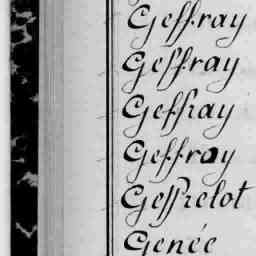 Geffray
Geffray
Geffray
Geffray
Geffrelot
Genée